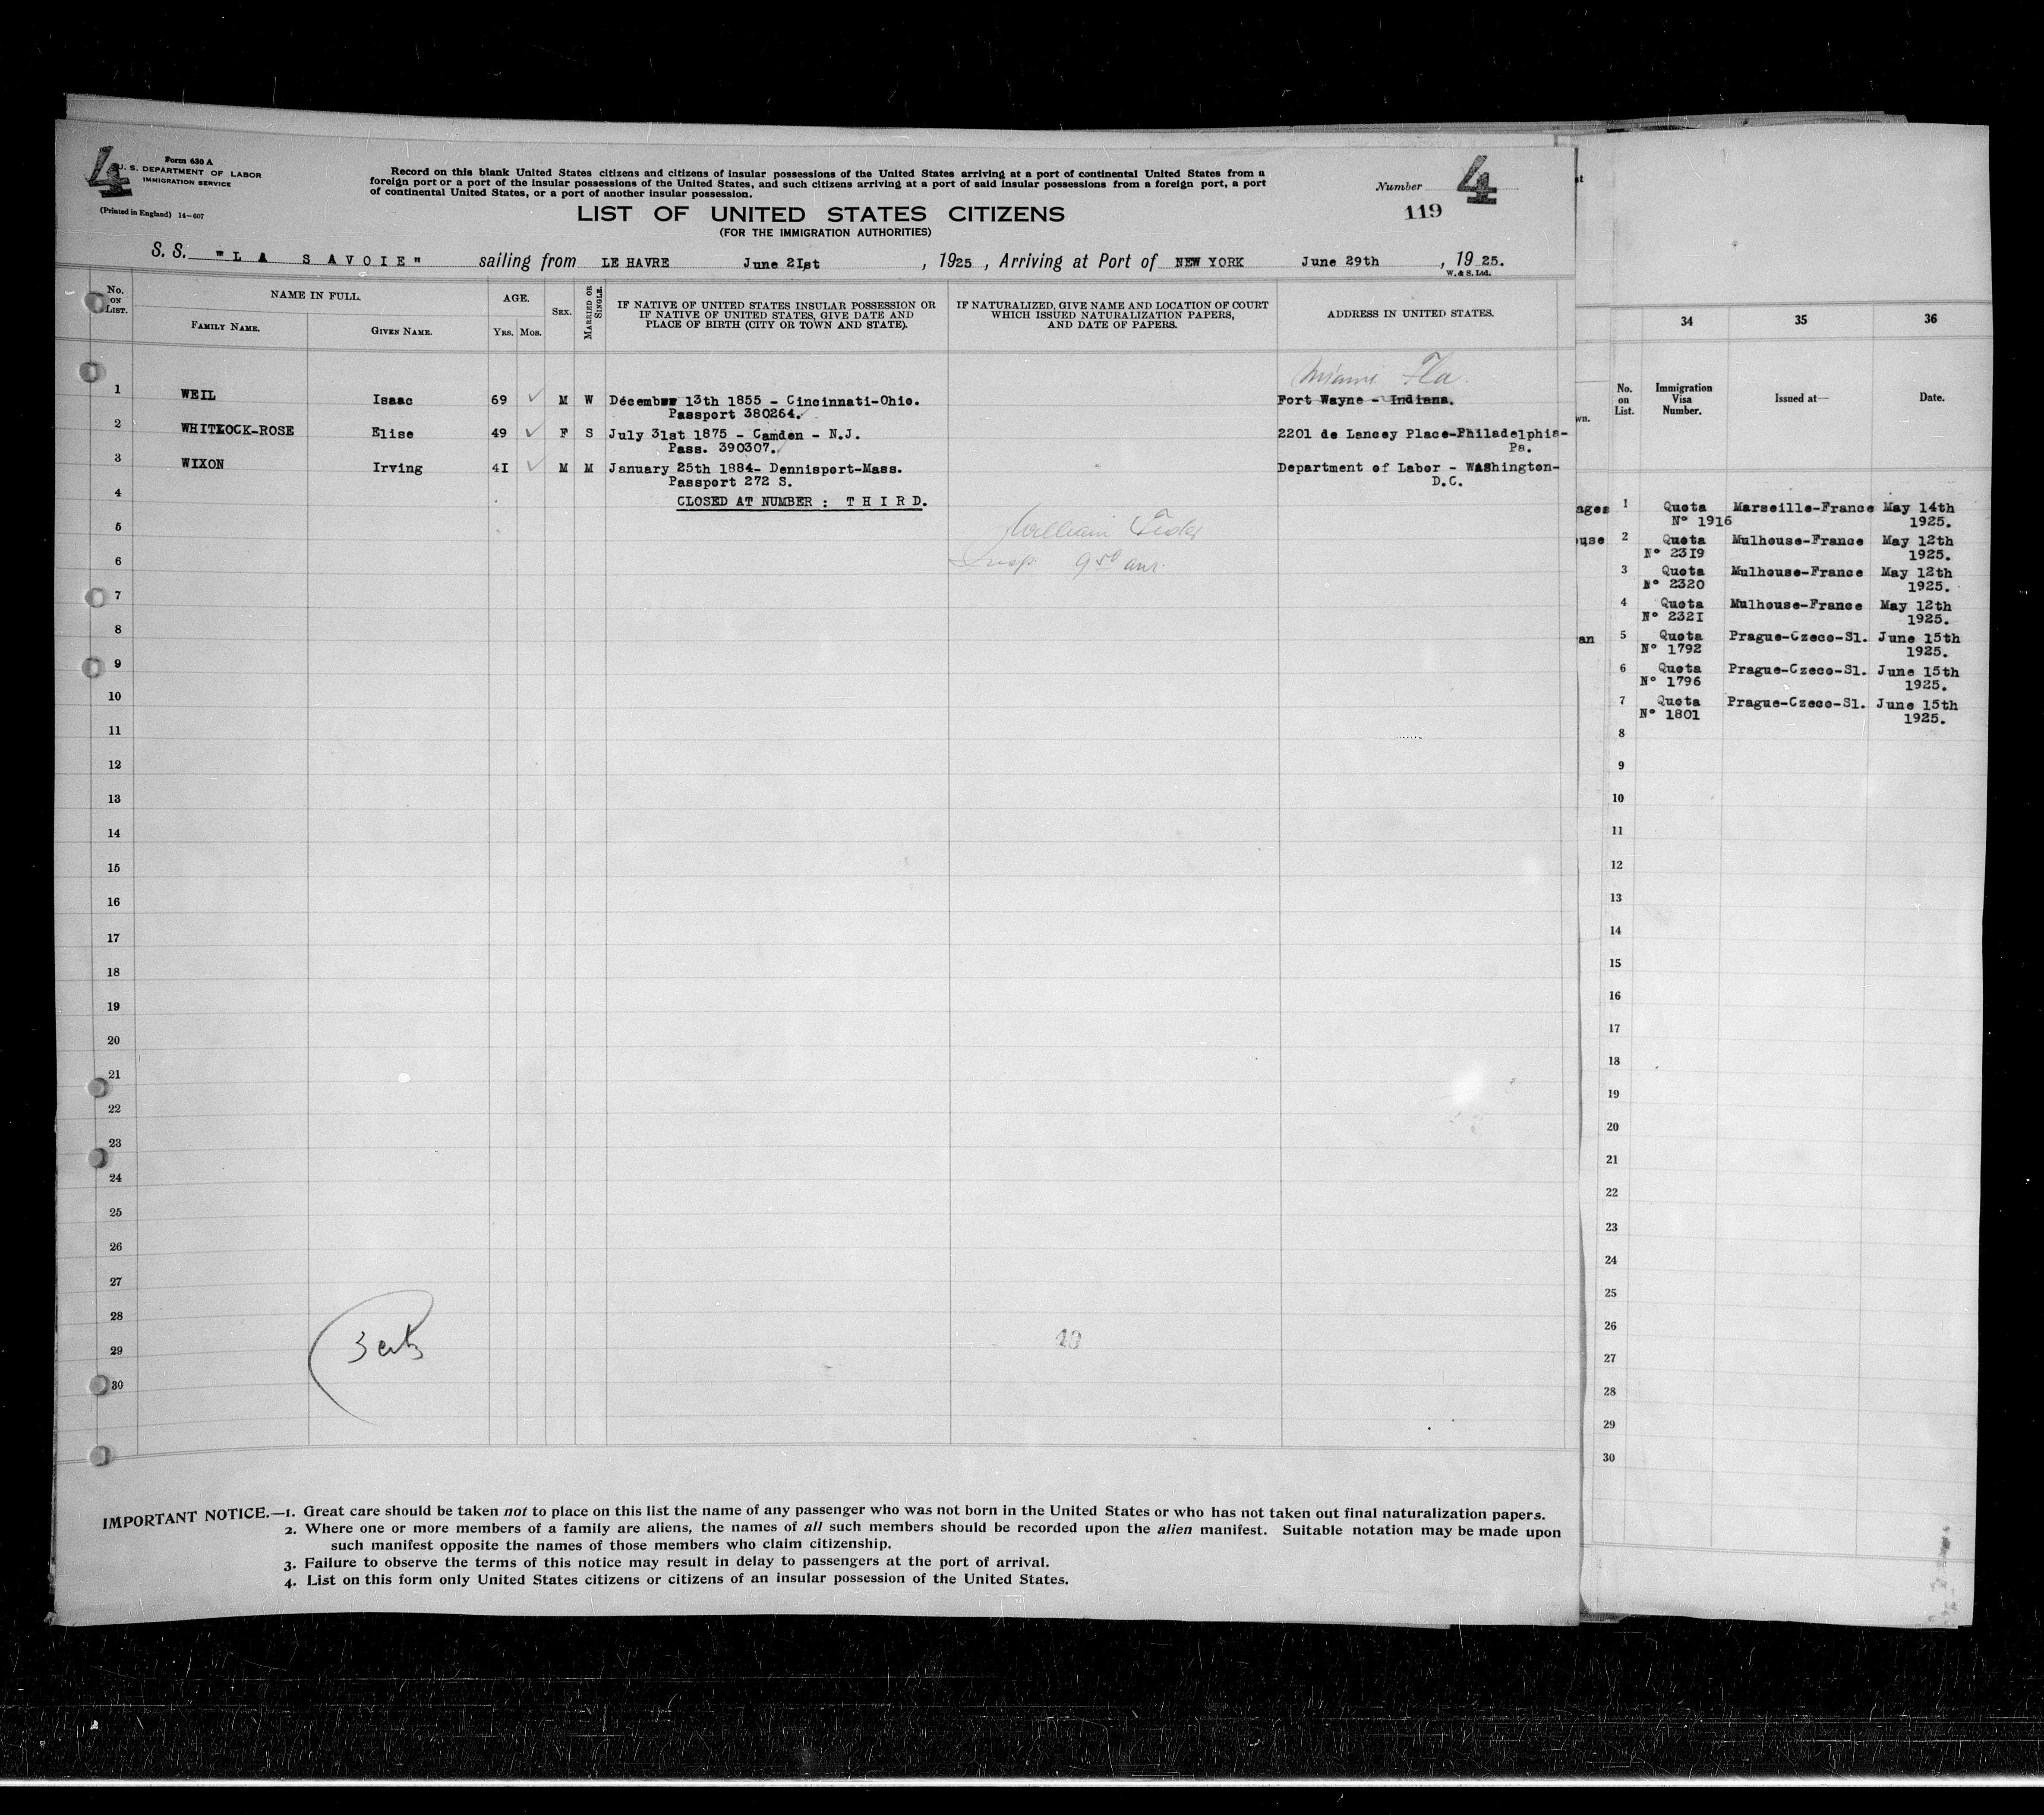 4
Form 630 A
U. S. DEPARTMENT OF LABOR
IMMIGRATION SERVICE
(Printed in England) 14—607
Record on this blank United States citizens and citizens of insular possessions of the United States arriving at a port of continental United States from a
foreign port or a port of the insular possessions of the United States, and such citizens arriving at a port of said insular possessions from a foreign port, a port
of continental United States, or a port of another insular possession.
Number 4
119
LIST OF UNITED STATES CITIZENS
(FOR THE IMMIGRATION AUTHORITIES)
S. S. "LA SAVOIE" sailing from LE HAVRE June 2Ist , 1925 , Arriving at Port of NEW YORK June 29th , 1925.
W. & S. Ltd.
No. ON LIST.
NAME IN FULL.
FAMILY NAME.
GIVEN NAME.
AGE.
YRS. MOS.
SEX.
MARRIED OR SINGLE.
IF NATIVE OF UNITED STATES INSULAR POSSESSION OR
IF NATIVE OF UNITED STATES, GIVE DATE AND
PLACE OF BIRTH (CITY OR TOWN AND STATE).
IF NATURALIZED, GIVE NAME AND LOCATION OF COURT
WHICH ISSUED NATURALIZATION PAPERS,
AND DATE OF PAPERS.
ADDRESS IN UNITED STATES.
Miami Fla.
1 WEIL Isaac 69 M W Décember 13th 1855 - Cincinnati-Ohio. Fort Wayne - Indiana.
Passport 380264.
2 WHITLOCK-ROSE Elise 49 F S July 31st 1875 - Camden - N.J. 2201 de Lancey Place-Philadelphia-
Pass. 390307. Pa.
3 WIXON Irving 4I M M January 25th 1884- Dennisport-Mass. Department of Labor - Washington-
Passport 272 S. D.C.
4 CLOSED AT NUMBER : T H I R D.
5 William
6 Insp. 9 50 am.
7
8
9
10
11
12
13
14
15
16
17
18
19
20
21
22
23
24
25
26
27
28
29
30
3
10
IMPORTANT NOTICE.—1. Great care should be taken not to place on this list the name of any passenger who was not born in the United States or who has not taken out final naturalization papers.
2. Where one or more members of a family are aliens, the names of all such members should be recorded upon the alien manifest. Suitable notation may be made upon
such manifest opposite the names of those members who claim citizenship.
3. Failure to observe the terms of this notice may result in delay to passengers at the port of arrival.
4. List on this form only United States citizens or citizens of an insular possession of the United States.
34 35 36
No. on List.
Immigration Visa Number.
Issued at—
Date.
1 Quota Marseille-France May 14th
N° 1916 1925.
2 Quota Mulhouse-France May 12th
N° 23I9 1925.
3 Quota Mulhouse-France May 12th
N° 2320 1925.
4 Quota Mulhouse-France May 12th
N° 232I 1925.
5 Quota Prague-Czeco-Sl. June 15th
N° 1792 1925.
6 Quota Prague-Czeco-Sl. June 15th
N° 1796 1925.
7 Quota Prague-Czeco-Sl. June 15th
N° 1801 1925.
8
9
10
11
12
13
14
15
16
17
18
19
20
21
22
23
24
25
26
27
28
29
30